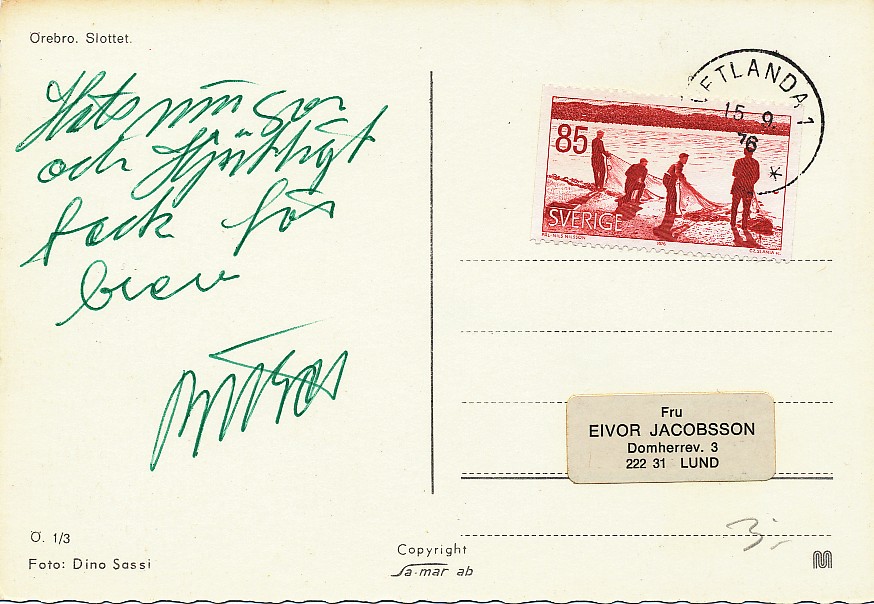 Örebro. Slottet.
och Hjärtligt
tack för
brev
ETLANDA 1
15 9
76
*
85
SVERIGE
1976
Fru
EIVOR JACOBSSON
Domherrev. 3
222 31 LUND
3:-
Ö. 1/3
Foto: Dino Sassi
Copyright
Sa-mar ab
M